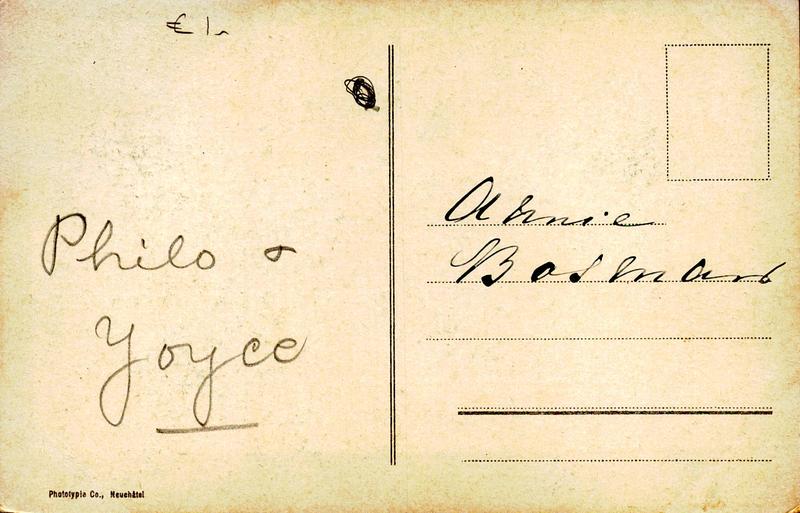 € 1,-
Philo &
Yoyce
Annie
Bosman
Phototypie Co., Neuchâtel